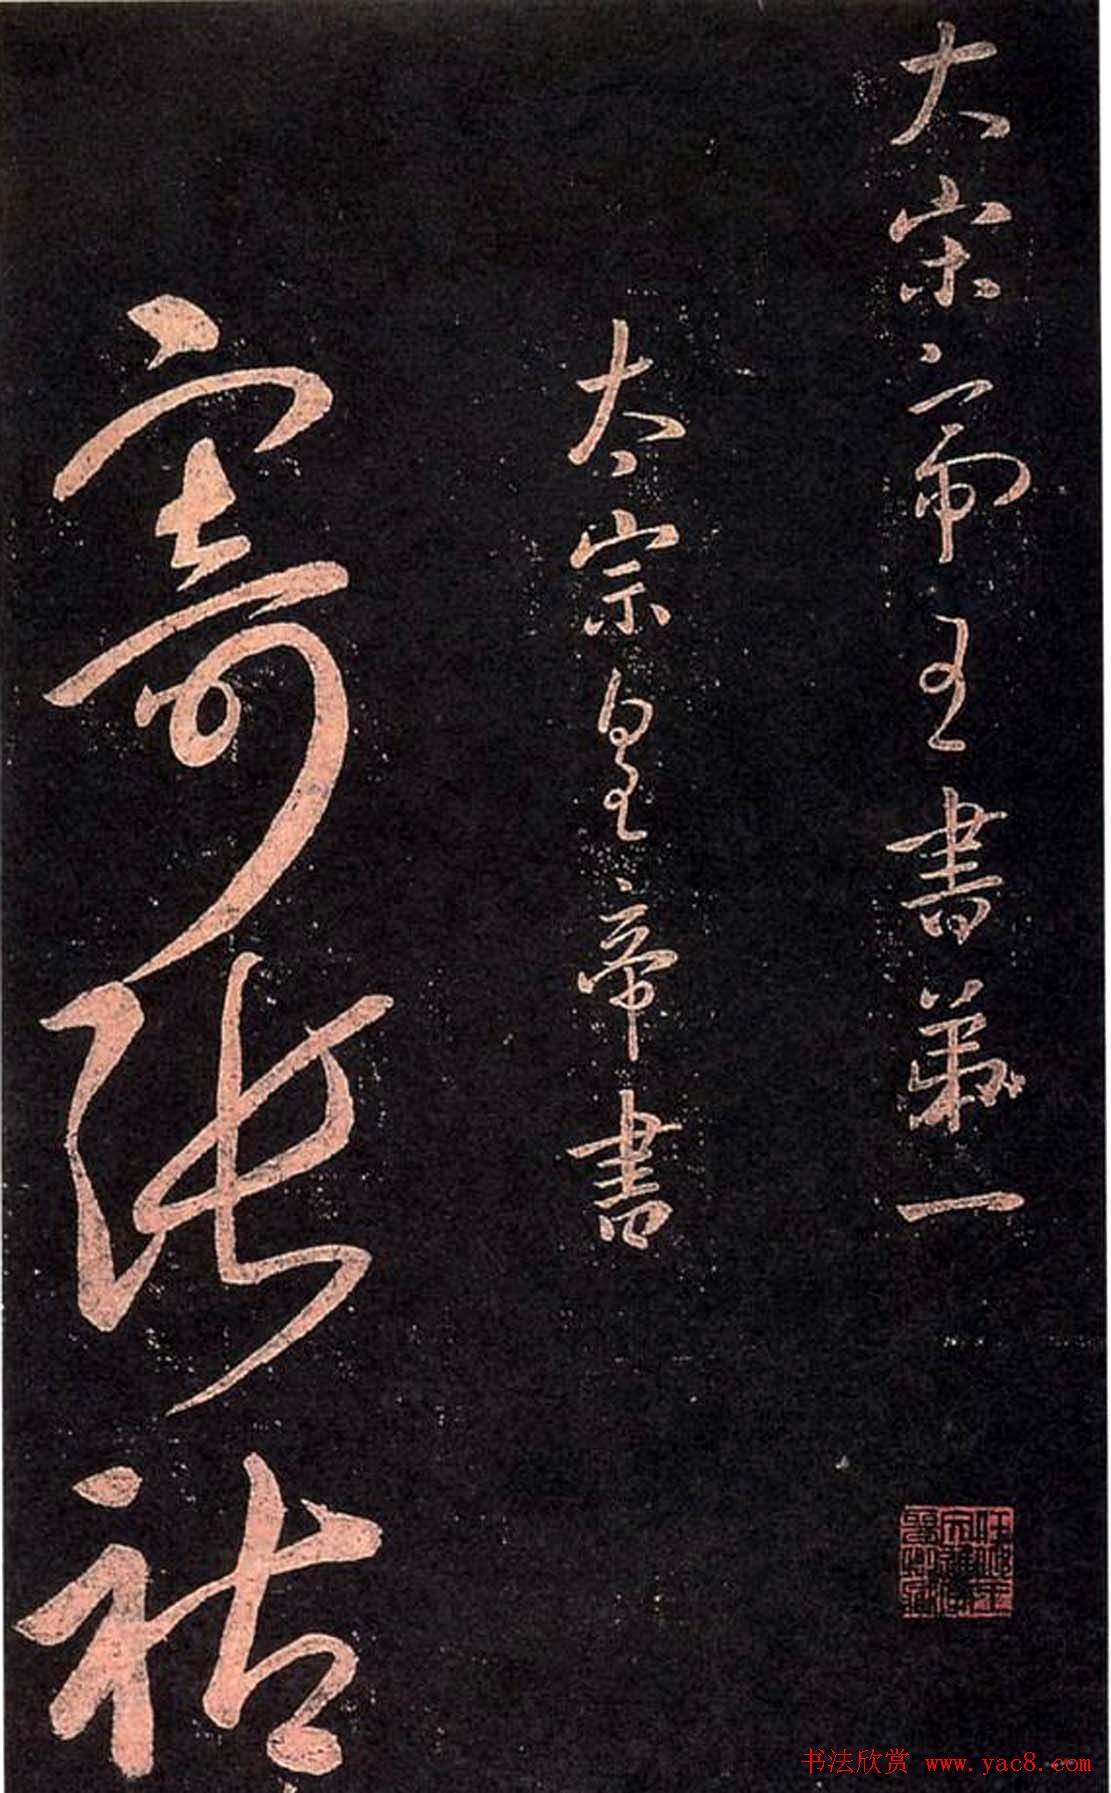 大宋帝王書第一
太宗皇帝書
寄張祜
书法欣赏 www.yac8.com